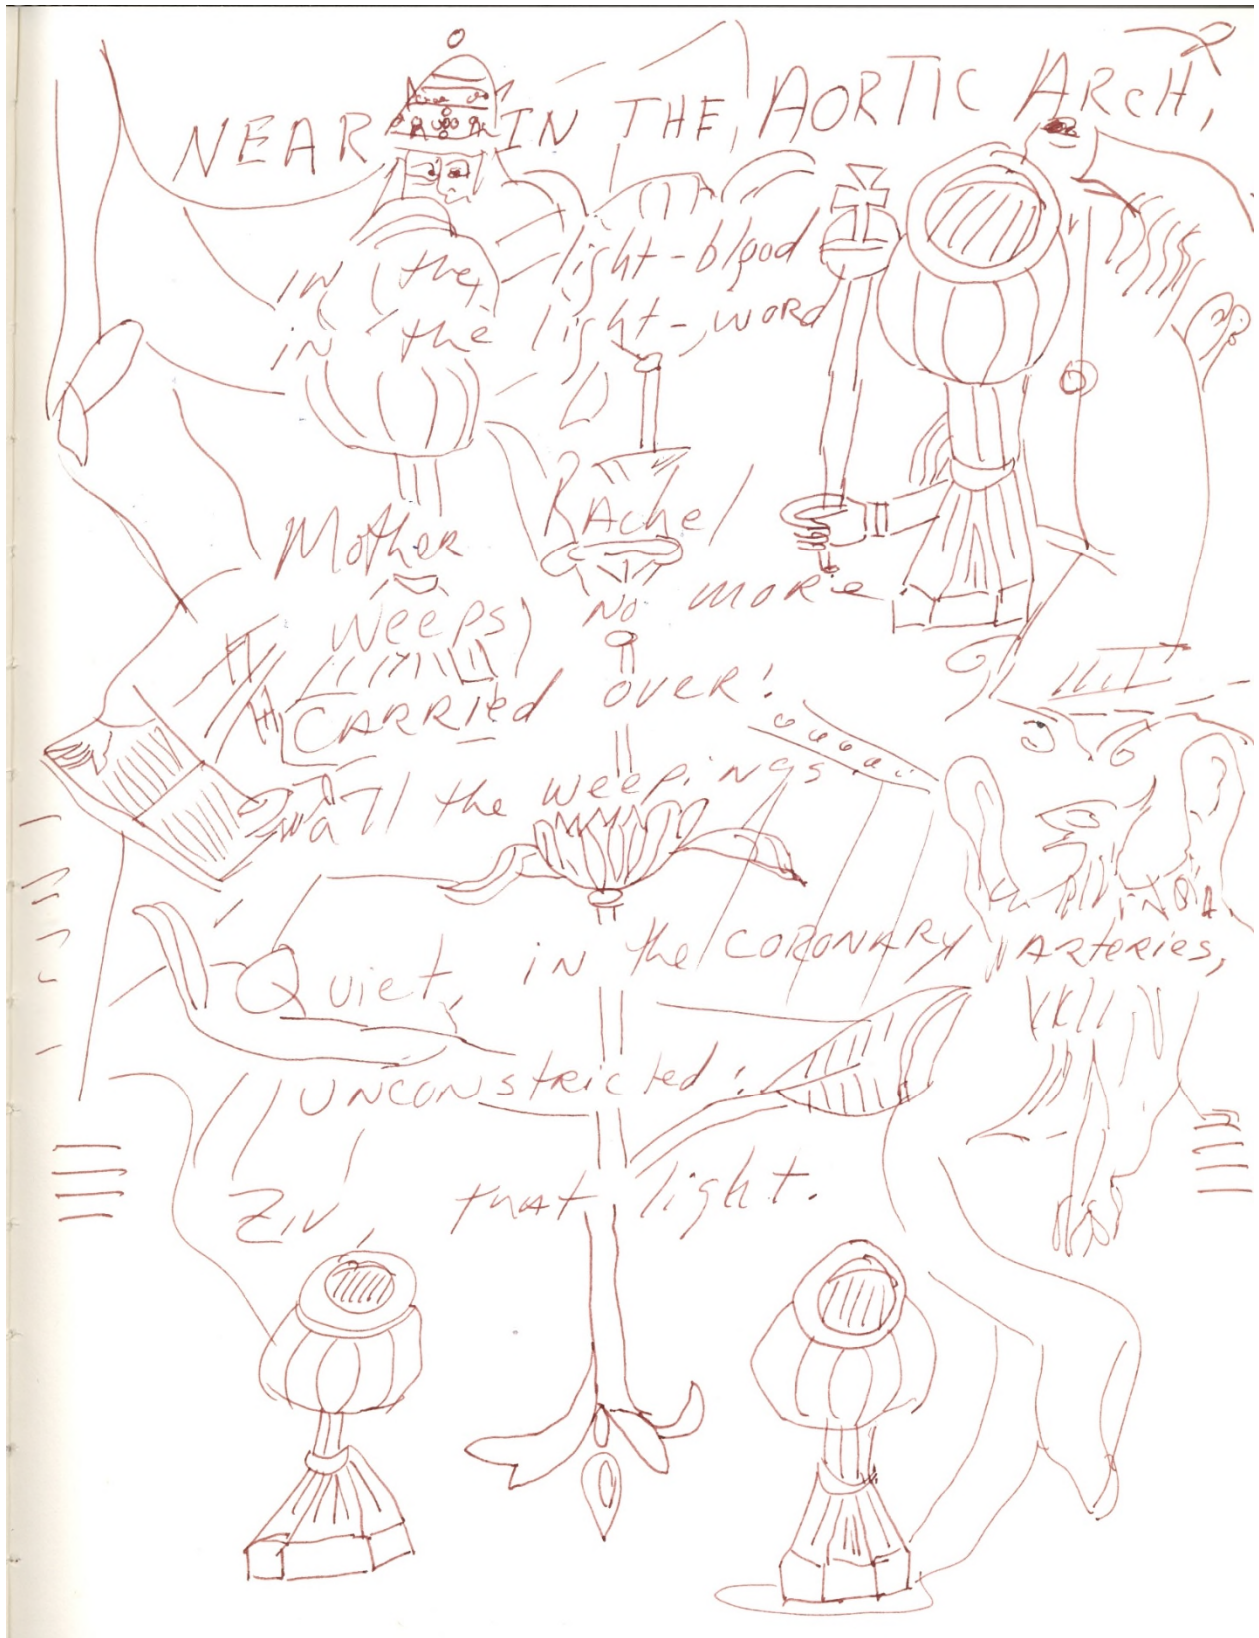 NEAR IN THE, AORTIC ARCH,
in the light-blood
in the light-word
Mother Rachel
weeps no more
CARRied over:
all the weepings.
Quiet, in the CORONARY ARteries,
UNCONstricted:
Ziv, that light.